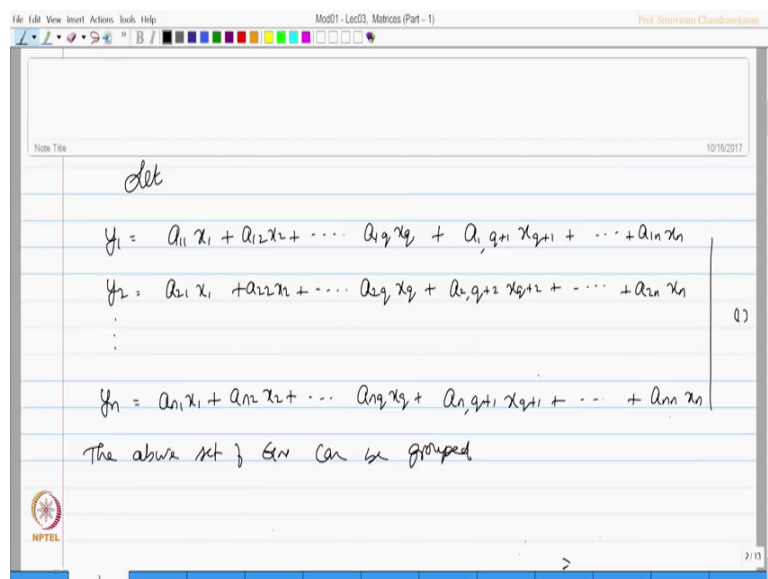 File Edit View Insert Actions Tools Help
Mod01 - Lec03, Matrices (Part – 1)
Prof. Srinivasan Chandrasekaran
B I
Note Title
10/16/2017
Let
y1 = a11 x1 + a12 x2 + ···· a1q xq + a1, q+1 xq+1 + ··· + a1n xn
y2 = a21 x1 + a22 x2 + ···· a2q xq + a2, q+2 xq+2 + ···· + a2n xn
(1)
⋮
yn = an1 x1 + an2 x2 + ··· anq xq + an, q+1 xq+1 + ··· + ann xn
The above set of Eqn can be grouped
NPTEL
2 / 13